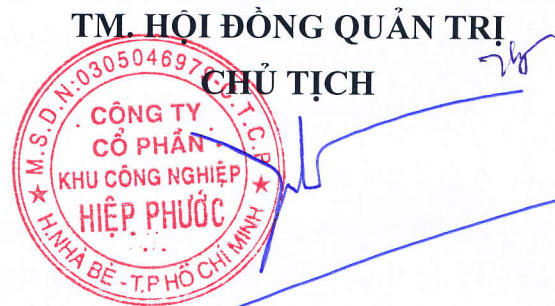 TM. HỘI ĐỒNG QUẢN TRỊ
CHỦ TỊCH
M.S.D.N:030504697 - C.T.C.P
CÔNG TY
CỔ PHẦN
KHU CÔNG NGHIỆP
HIỆP PHƯỚC
H.NHÀ BÈ - T.P HỒ CHÍ MINH